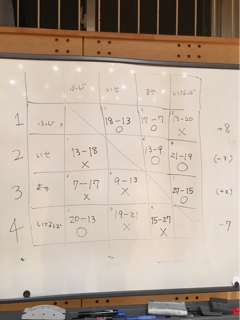 ふじ いせ みや いけなど
1 ふじ 18-13 ○ 17-7 ○ 13-20 × +8
2 いせ 13-18 × 13-9 ○ 21-19 ○ (-3)
3 みや 7-17 × 9-13 × 27-15 ○ (+2)
4 20-13 ○ 19-21 × 15-27 × -7